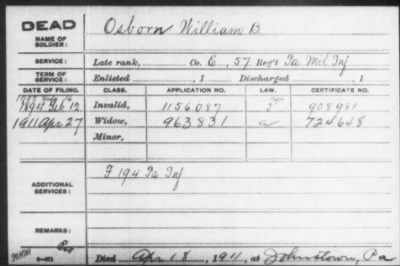 DEAD
NAME OF SOLDIER:
Osborn William B
SERVICE:
Late rank, Co. E, 57 Reg't Pa Mil Inf
TERM OF SERVICE:
Enlisted , 1 Discharged , 1
DATE OF FILING. CLASS. APPLICATION NO. LAW. CERTIFICATE NO.
1894 Feb 12 Invalid, 1156087 908981
1911 Apr 27 Widow, 963831 a 724648
Minor,
ADDITIONAL SERVICES:
F 194 Pa Inf
REMARKS:
Died Apr 18, 1911, at Johnstown, Pa